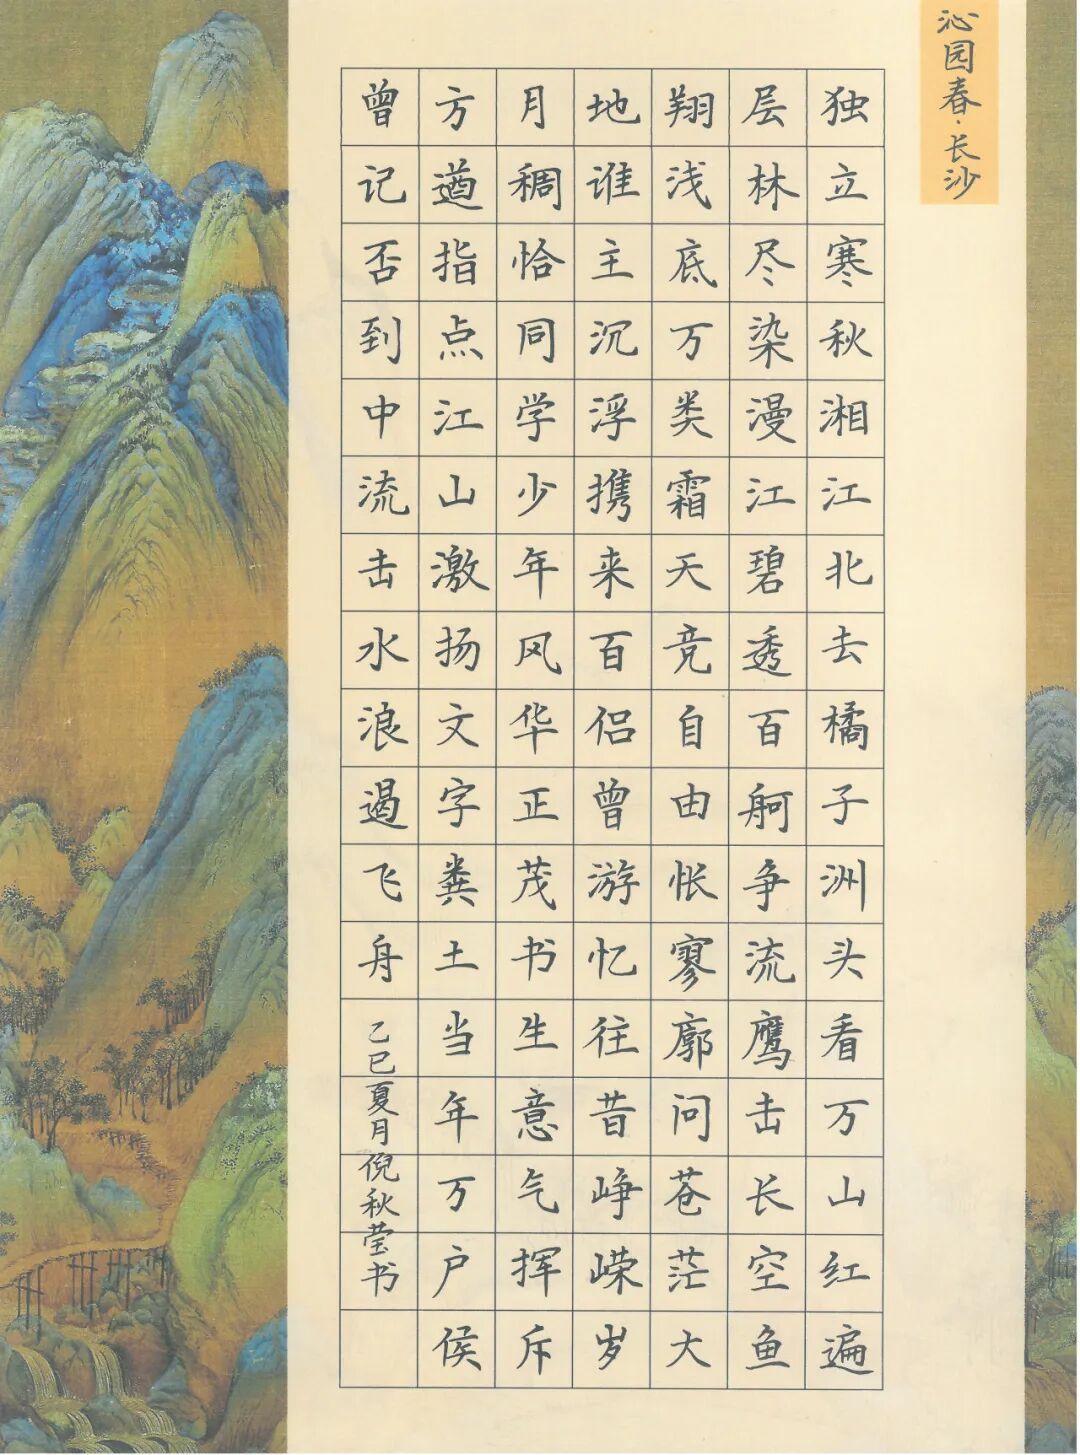 沁园春·长沙
独立寒秋湘江北去橘子洲头看万山红遍
层林尽染漫江碧透百舸争流鹰击长空鱼
翔浅底万类霜天竞自由怅寥廓问苍茫大
地谁主沉浮携来百侣曾游忆往昔峥嵘岁
月稠恰同学少年风华正茂书生意气挥斥
方遒指点江山激扬文字粪土当年万户侯
曾记否到中流击水浪遏飞舟
乙巳夏月倪秋莹书